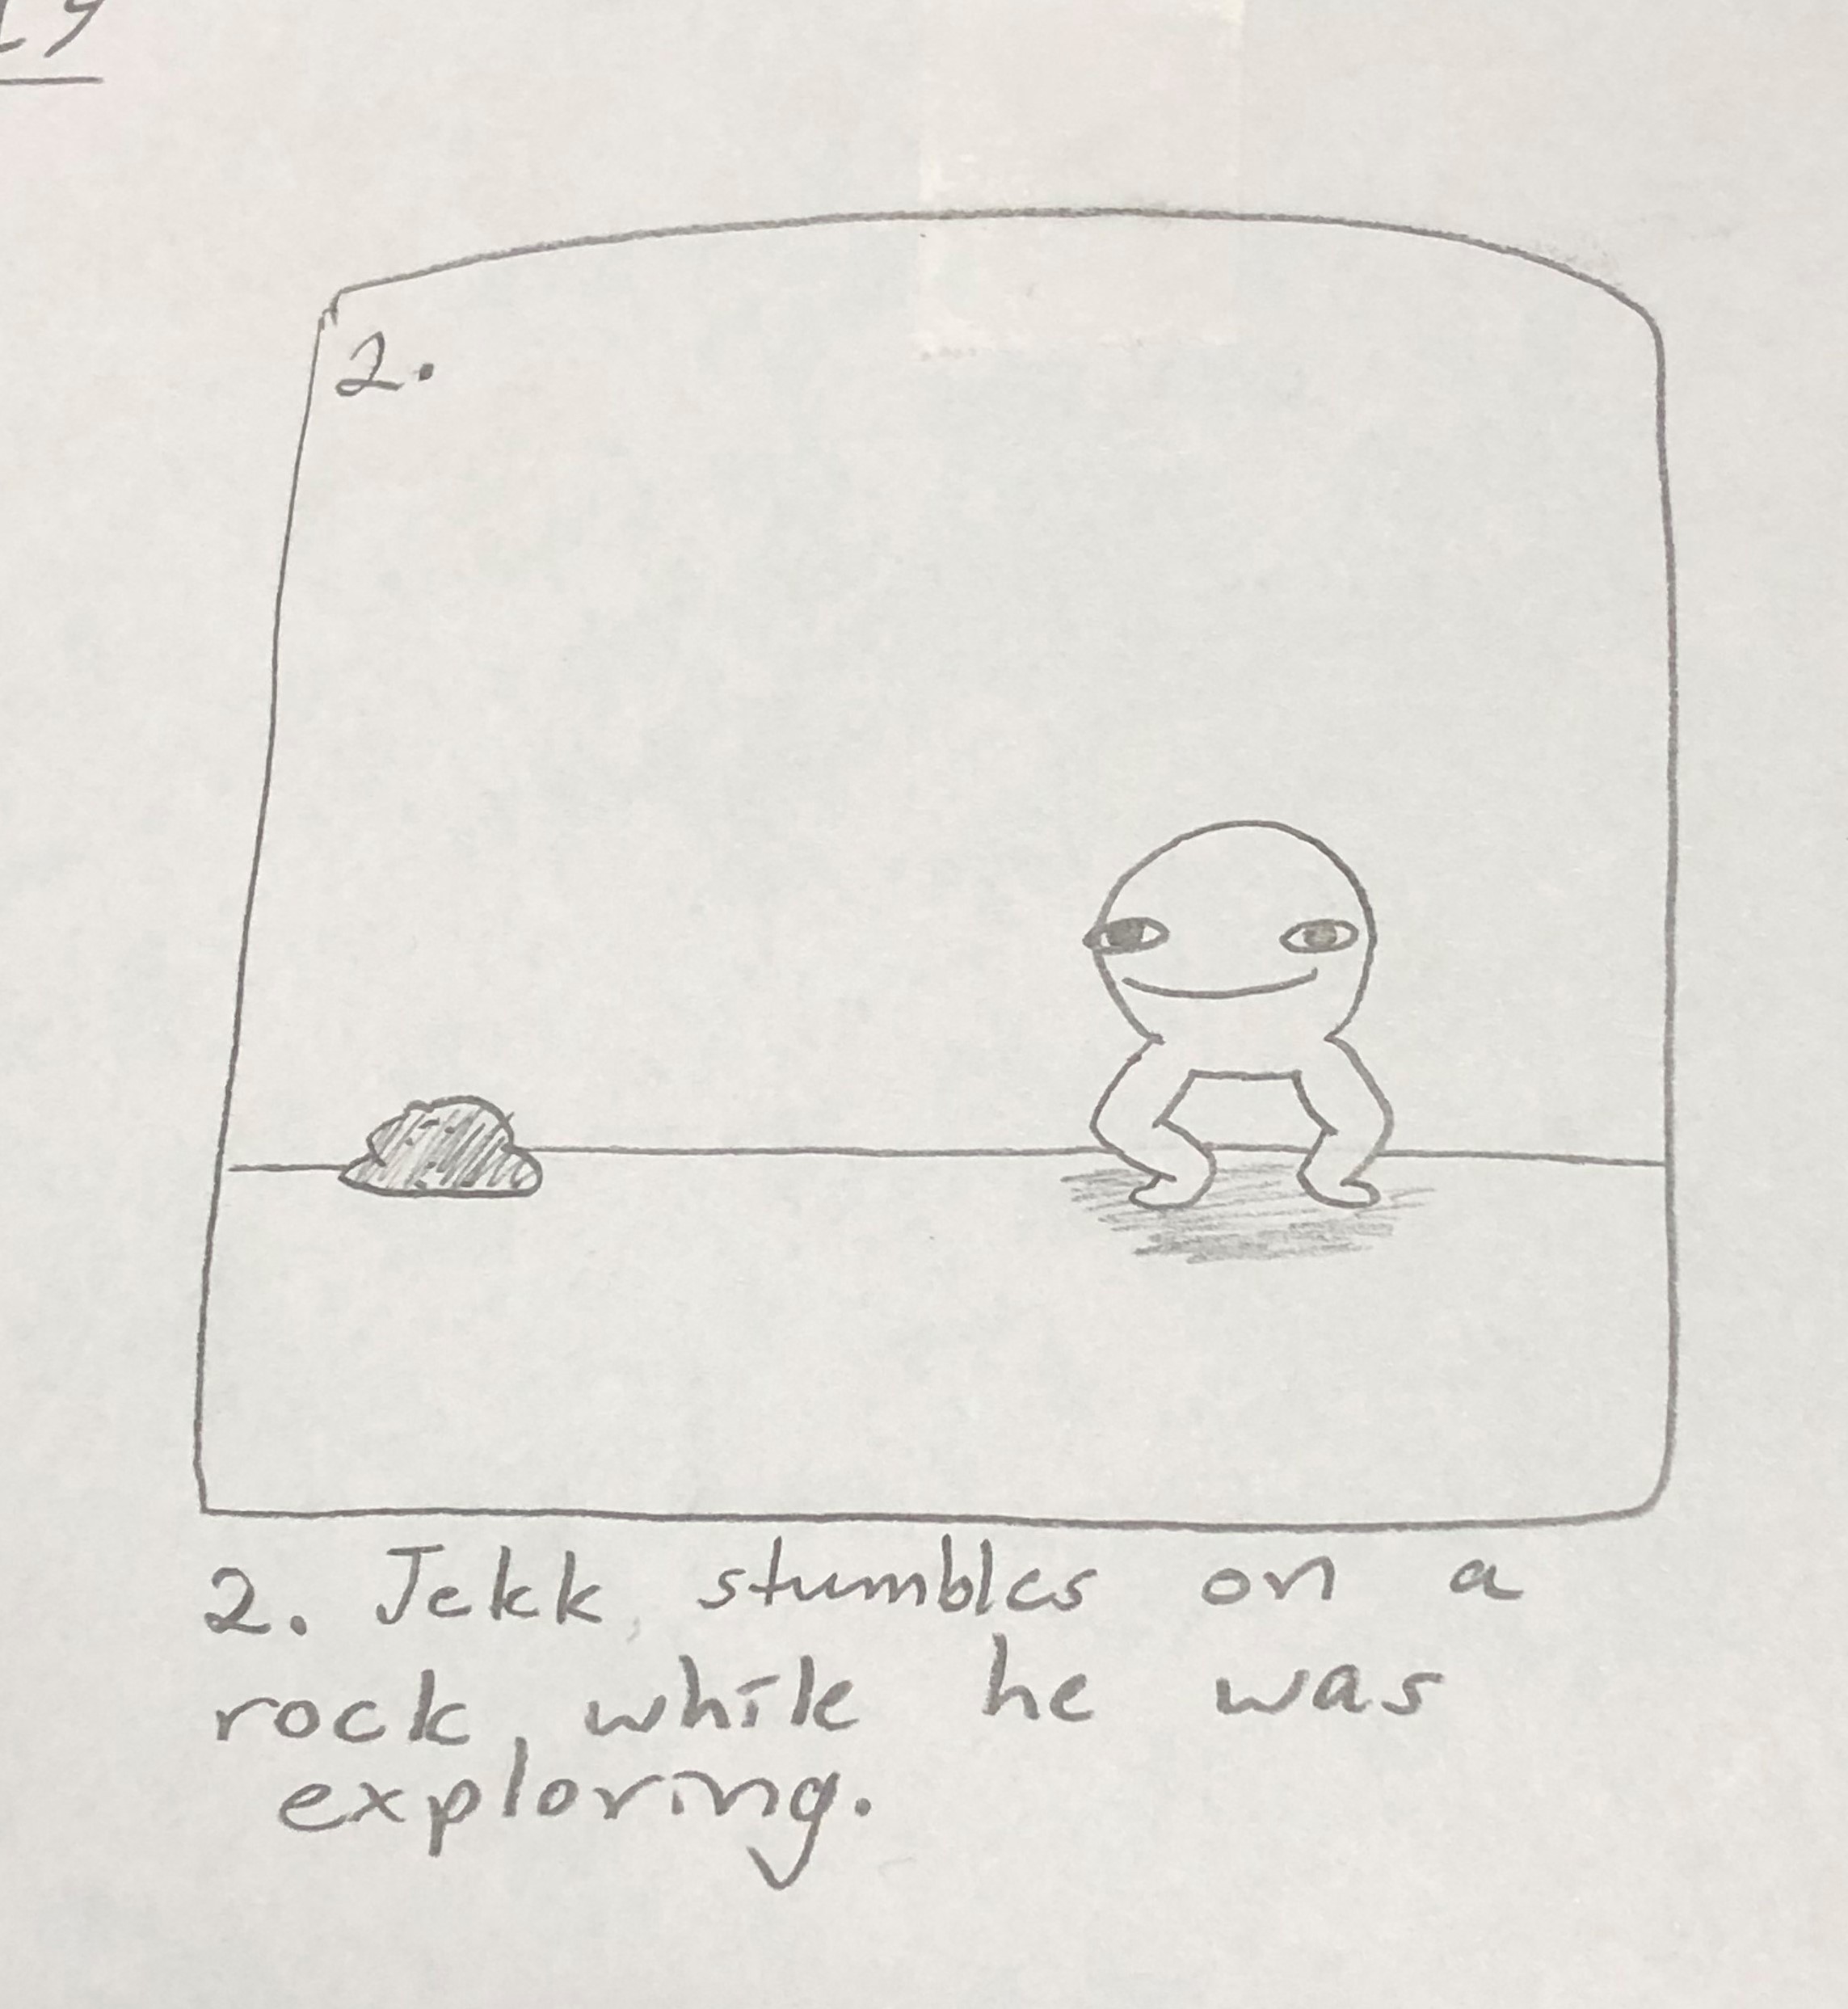 2.
2. Jekk stumbles on a
rock, while he was
exploring.